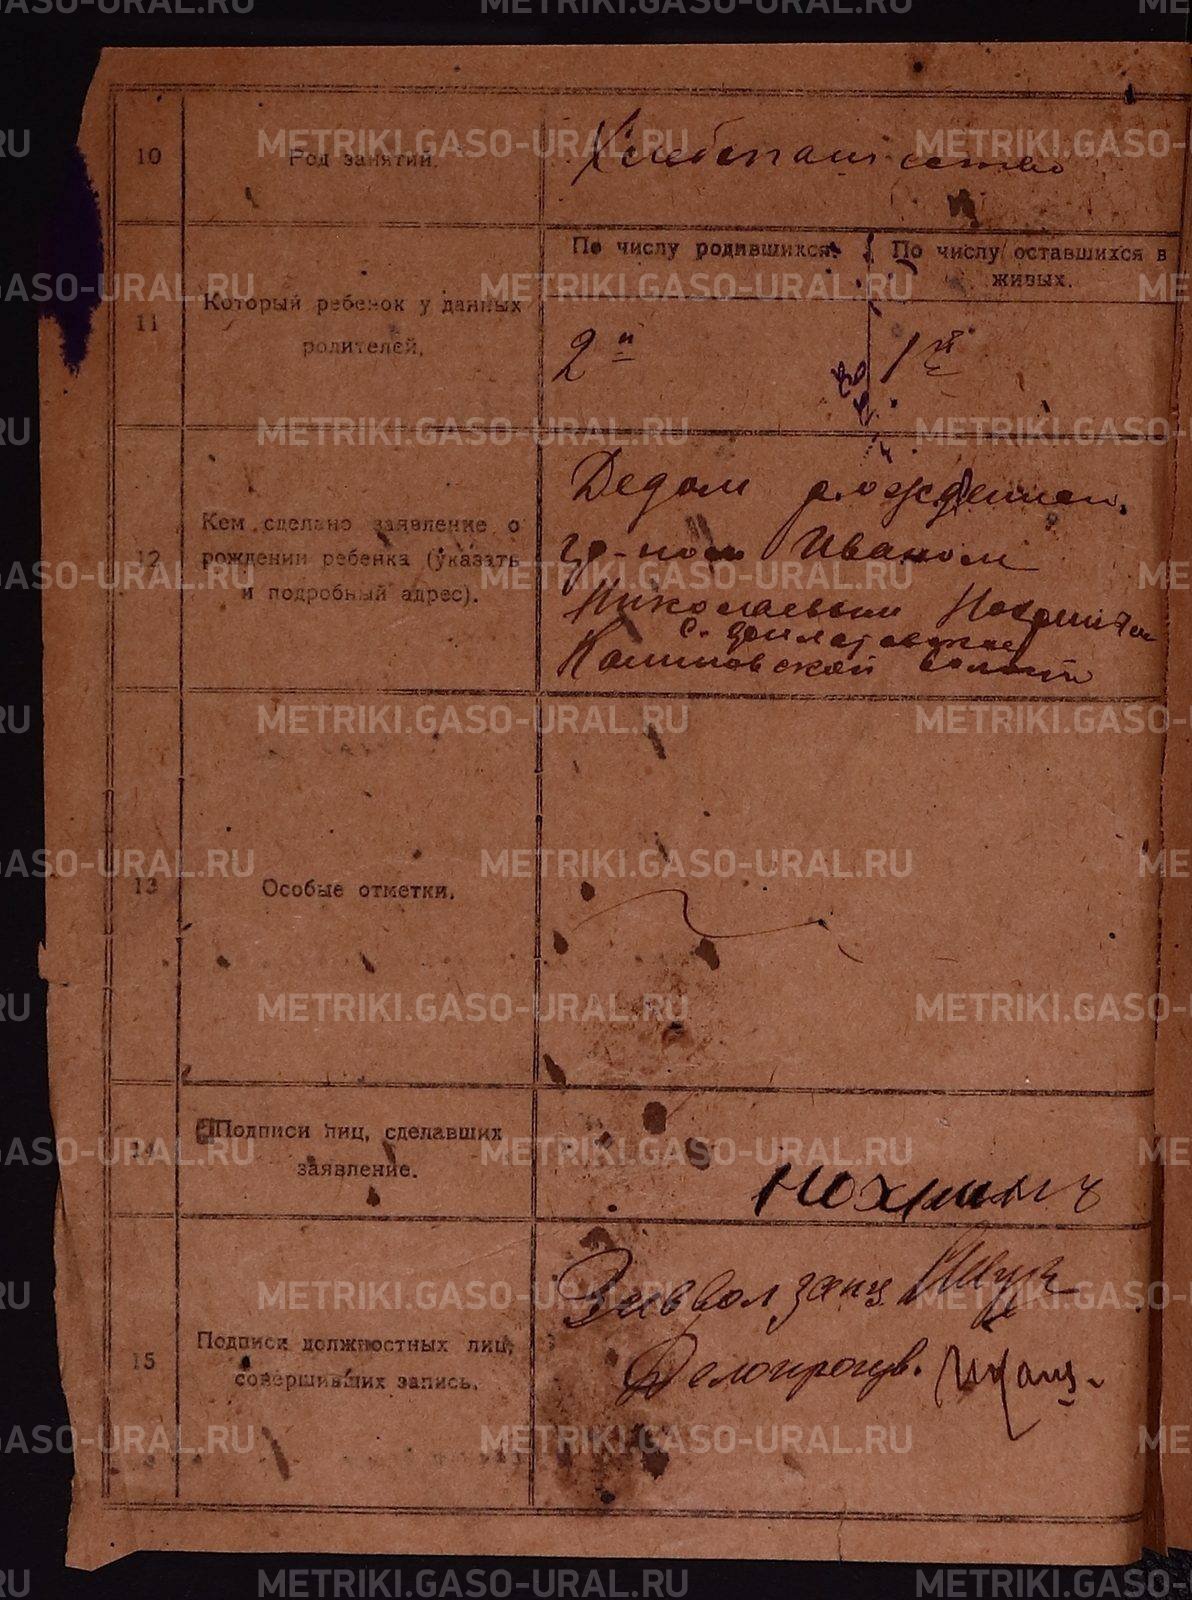 10
Род занятий.
Хлебопашество
11
Который ребенок у данных
родителей.
По числу родившихся.
По числу оставшихся в
живых.
2й
1й
12
Кем сделано заявление о
рождении ребенка (указать
и подробный адрес).
Дедом
гр-ном Иваном
Николаевым
волости
13
Особые отметки.
14
Подписи лиц, сделавших
заявление.
15
Подписи должностных лиц,
совершивших запись.
Зав
Делопроизв.
METRIKI.GASO-URAL.RU